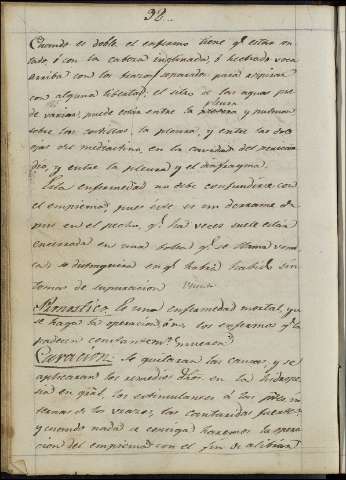 38..
Cuando es doble el enfermo tiene q.e estar sen-
tado, ó con la cabeza inclinada, ó hechado voca
arriba con los brazos separados para respirar
con alguna libertad. el sitio de las aguas pue-
de variar, puede estar entre la pleura y pulmon
sobre las costillas, la pleura, y entre las dos
ojas del mediastino, en la cavidad del pericar-
dio, y entre la pleura y el diafragma.
Esta enfermedad no debe confundirse con
el empiema, pues este es un derrame de
pus en el pecho, q.e há veces suele estar
encerrado en una bolsa q.e se llama vomi-
ca; se distinguira en q.e habrá habido sin-
tomas de supuracion
Pronostico. Es una enfermedad mortal, ya
se haga la operacion, ó no, los enfermos q.e la
padecen constantem.te mueren
Curacion. Se quitaran las causas, y se
aplicaran los remedios dhos. en la hidrope-
sia en gral, los estimulantes á las ptes. in-
ternas de los brazos; las cantaridas fuertes
y cuando nada se consiga haremos la opera-
cion del empiema con el fin de alibiar